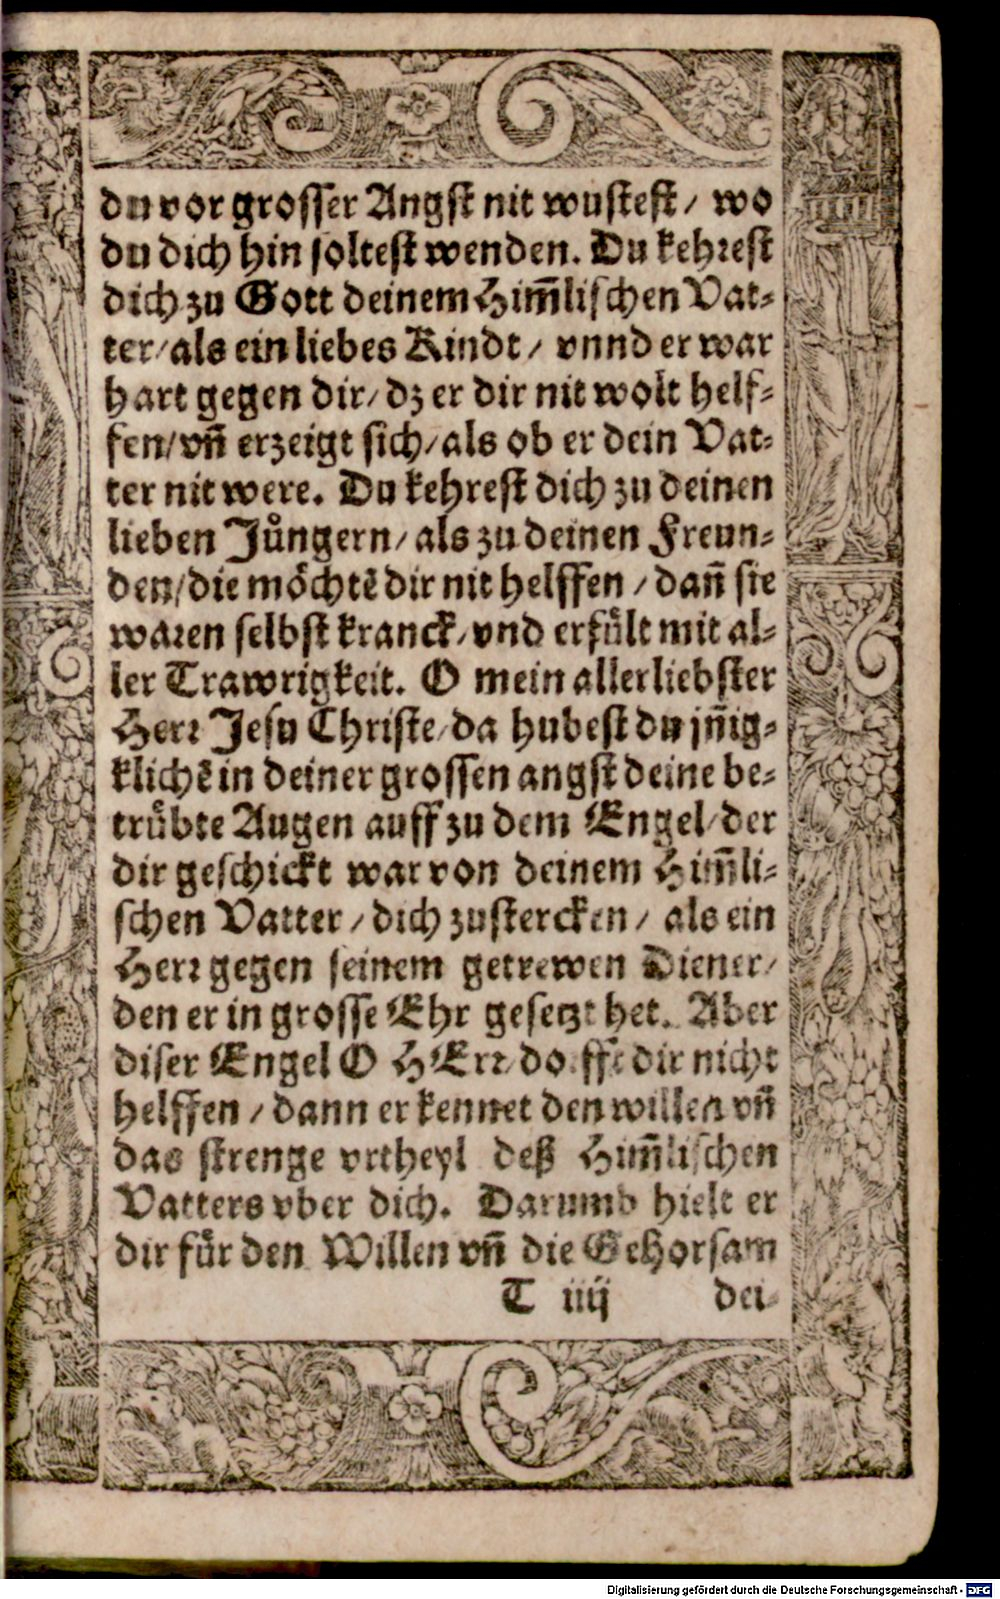 du vor grosser Angst nit wustest / wo
du dich hin soltest wenden. Du kehrest
dich zu Gott deinem Him̃lischen Vat⸗
ter / als ein liebes Kindt / vnnd er war
hart gegen dir / dz er dir nit wolt helf⸗
fen / vñ erzeigt sich / als ob er dein Vat⸗
ter nit were. Du kehrest dich zu deinen
lieben Jůngern / als zu deinen Freun⸗
den / die möchtē dir nit helffen / dañ sie
waren selbst kranck / vnd erfült mit al⸗
ler Trawrigkeit. O mein allerliebster
Herr Jesu Christe / da hubest du jñig⸗
klichē in deiner grossen angst deine be⸗
trübte Augen auff zu dem Engel / der
dir geschickt war von deinem Him̃li⸗
schen Vatter / dich zustercken / als ein
Herr gegen seinem getrewen Diener /
den er in grosse Ehr gesetzt het. Aber
diser Engel O HErr / dorfft dir nicht
helffen / dann er kennet den willen vñ
das strenge vrtheyl deß Him̃lischen
Vatters vber dich. Darumb hielt er
dir für den Willen vñ die Gehorsam
T iiij dei⸗
Digitalisierung gefördert durch die Deutsche Forschungsgemeinschaft - DFG